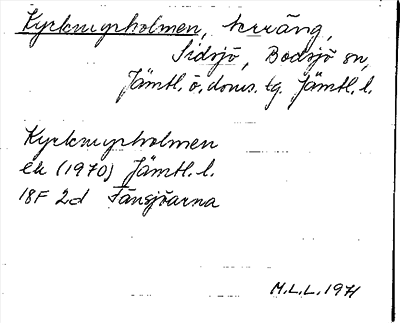 Kyrkmyrholmen, terräng,
Sidsjö, Bodsjö sn,
Jämtl. ö. doms. tg. Jämtl. l.
Kyrkmyrholmen
ek (1970) Jämtl. l.
18F 2d Fansjöarna
M.L.L. 1971